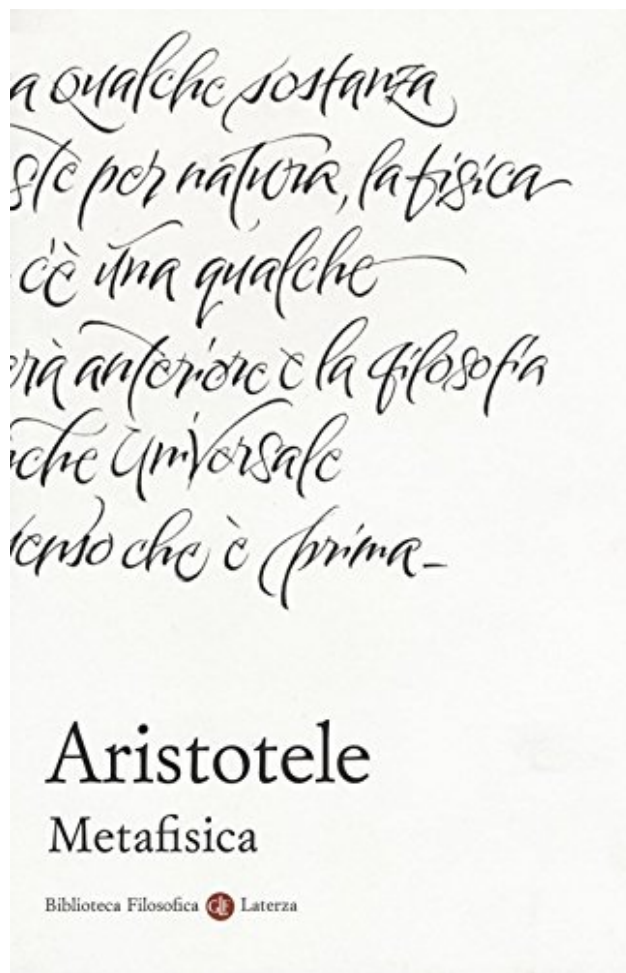 a qualche sostanza
ste per natura, la fisica
c'è una qualche
rà anteriore è la filosofia
che universale
senso che è prima_
Aristotele
Metafisica
Biblioteca Filosofica GLF Laterza